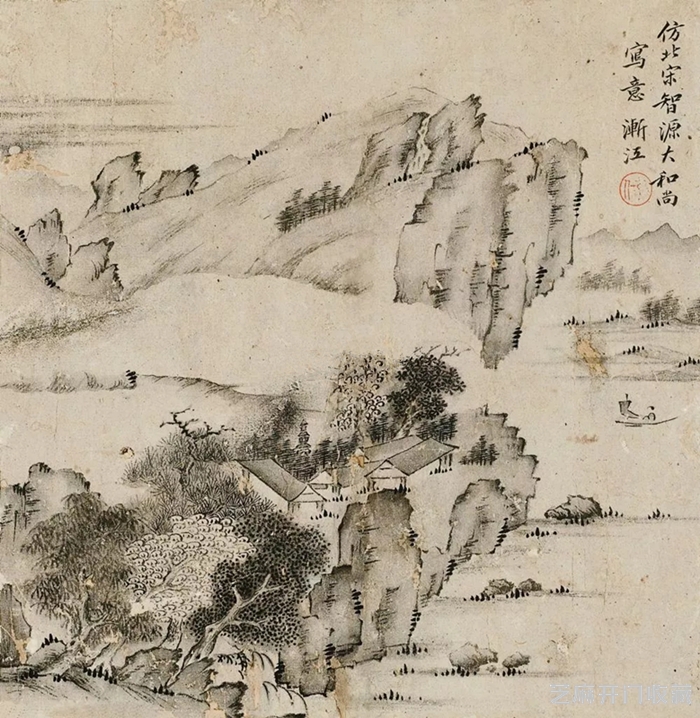 仿北宋智源大和尚
寫意 漸江
芝麻开门收藏